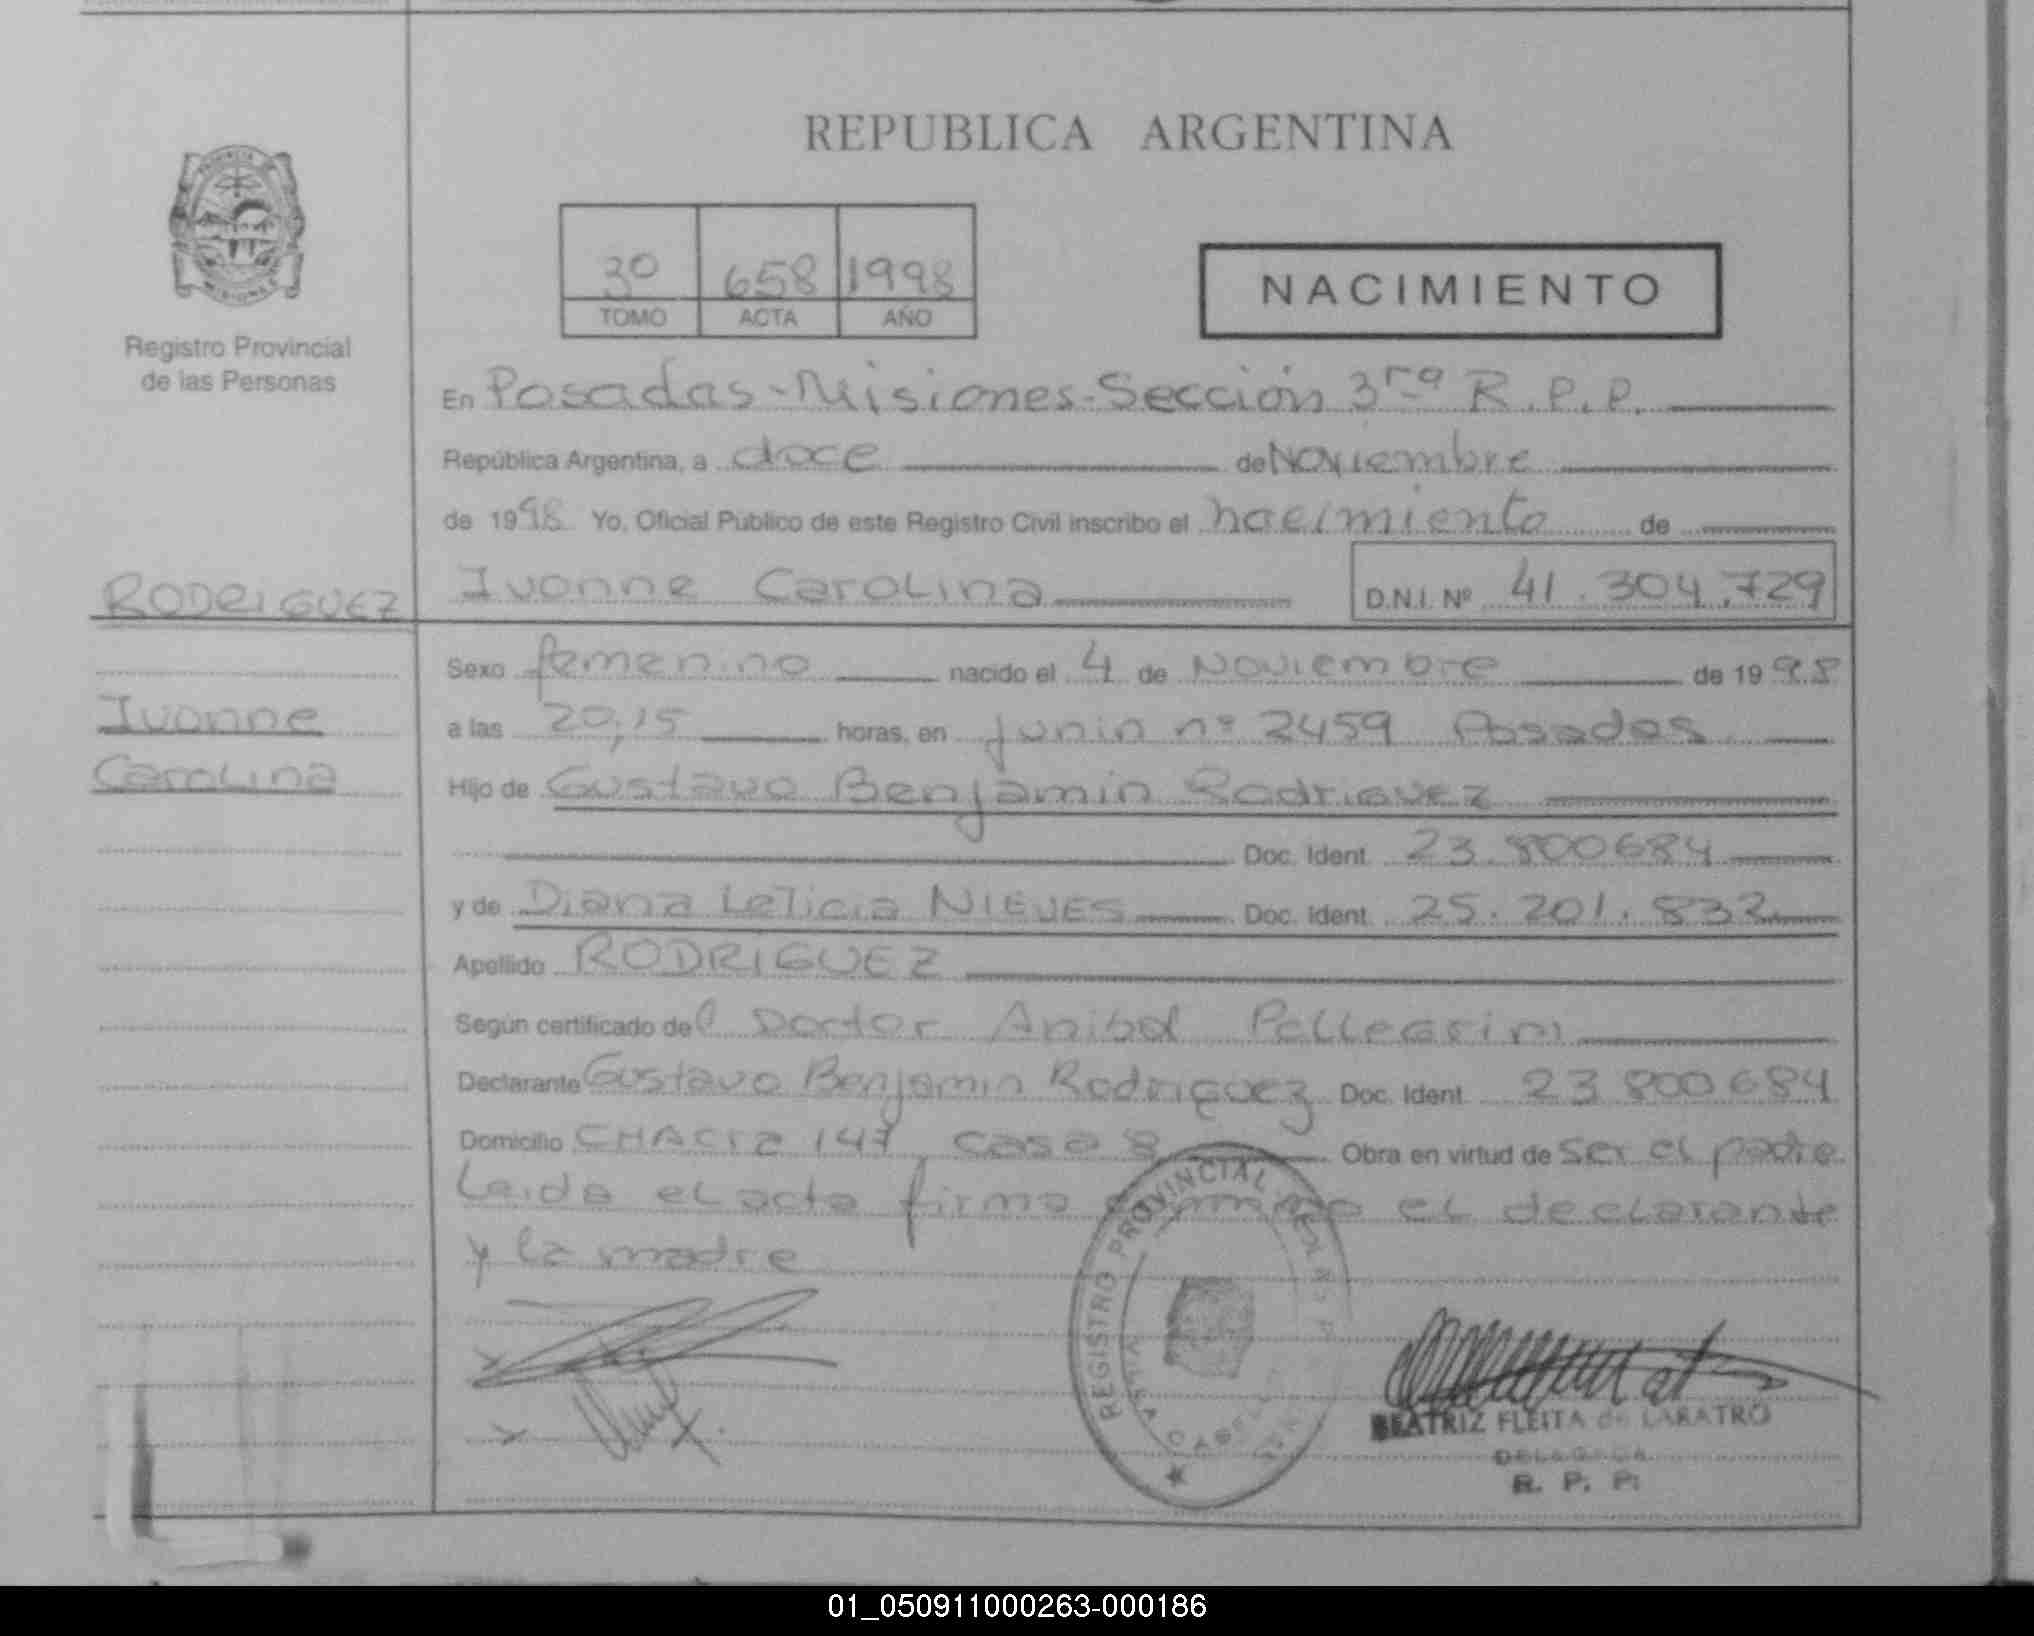 REPUBLICA ARGENTINA
PROVINCIA DE
MISIONES
Registro Provincial
de las Personas
30 658 1998
TOMO ACTA AÑO
NACIMIENTO
En Posadas-Misiones-Sección 3ra R.P.P.
República Argentina, a doce de Noviembre
de 1998 Yo, Oficial Publico de este Registro Civil inscribo el nacimiento de
RODRIGUEZ
Ivonne Carolina
Ivonne Carolina D.N.I. Nº 41.304.729
Sexo femenino nacido el 4 de Noviembre de 1998
a las 20,15 horas, en Junin nº 2459 Posadas
Hijo de Gustavo Benjamin Rodriguez
Doc. Ident. 23.800684
y de Diana Leticia NIEVES Doc. Ident. 25.201.832
Apellido RODRIGUEZ
Según certificado del Doctor Anibal Pellegrini
Declarante Gustavo Benjamin Rodriguez Doc. Ident. 23 800684
Domicilio CHACra 147 casa 8 Obra en virtud de ser el padre
Leida el acta firma conmigo el declarante
y la madre
REGISTRO PROVINCIAL DE LAS P
VILLA CABELLO
BEATRIZ FLEITA de LARATRO
DELEGADA
R. P. P.
01_050911000263-000186